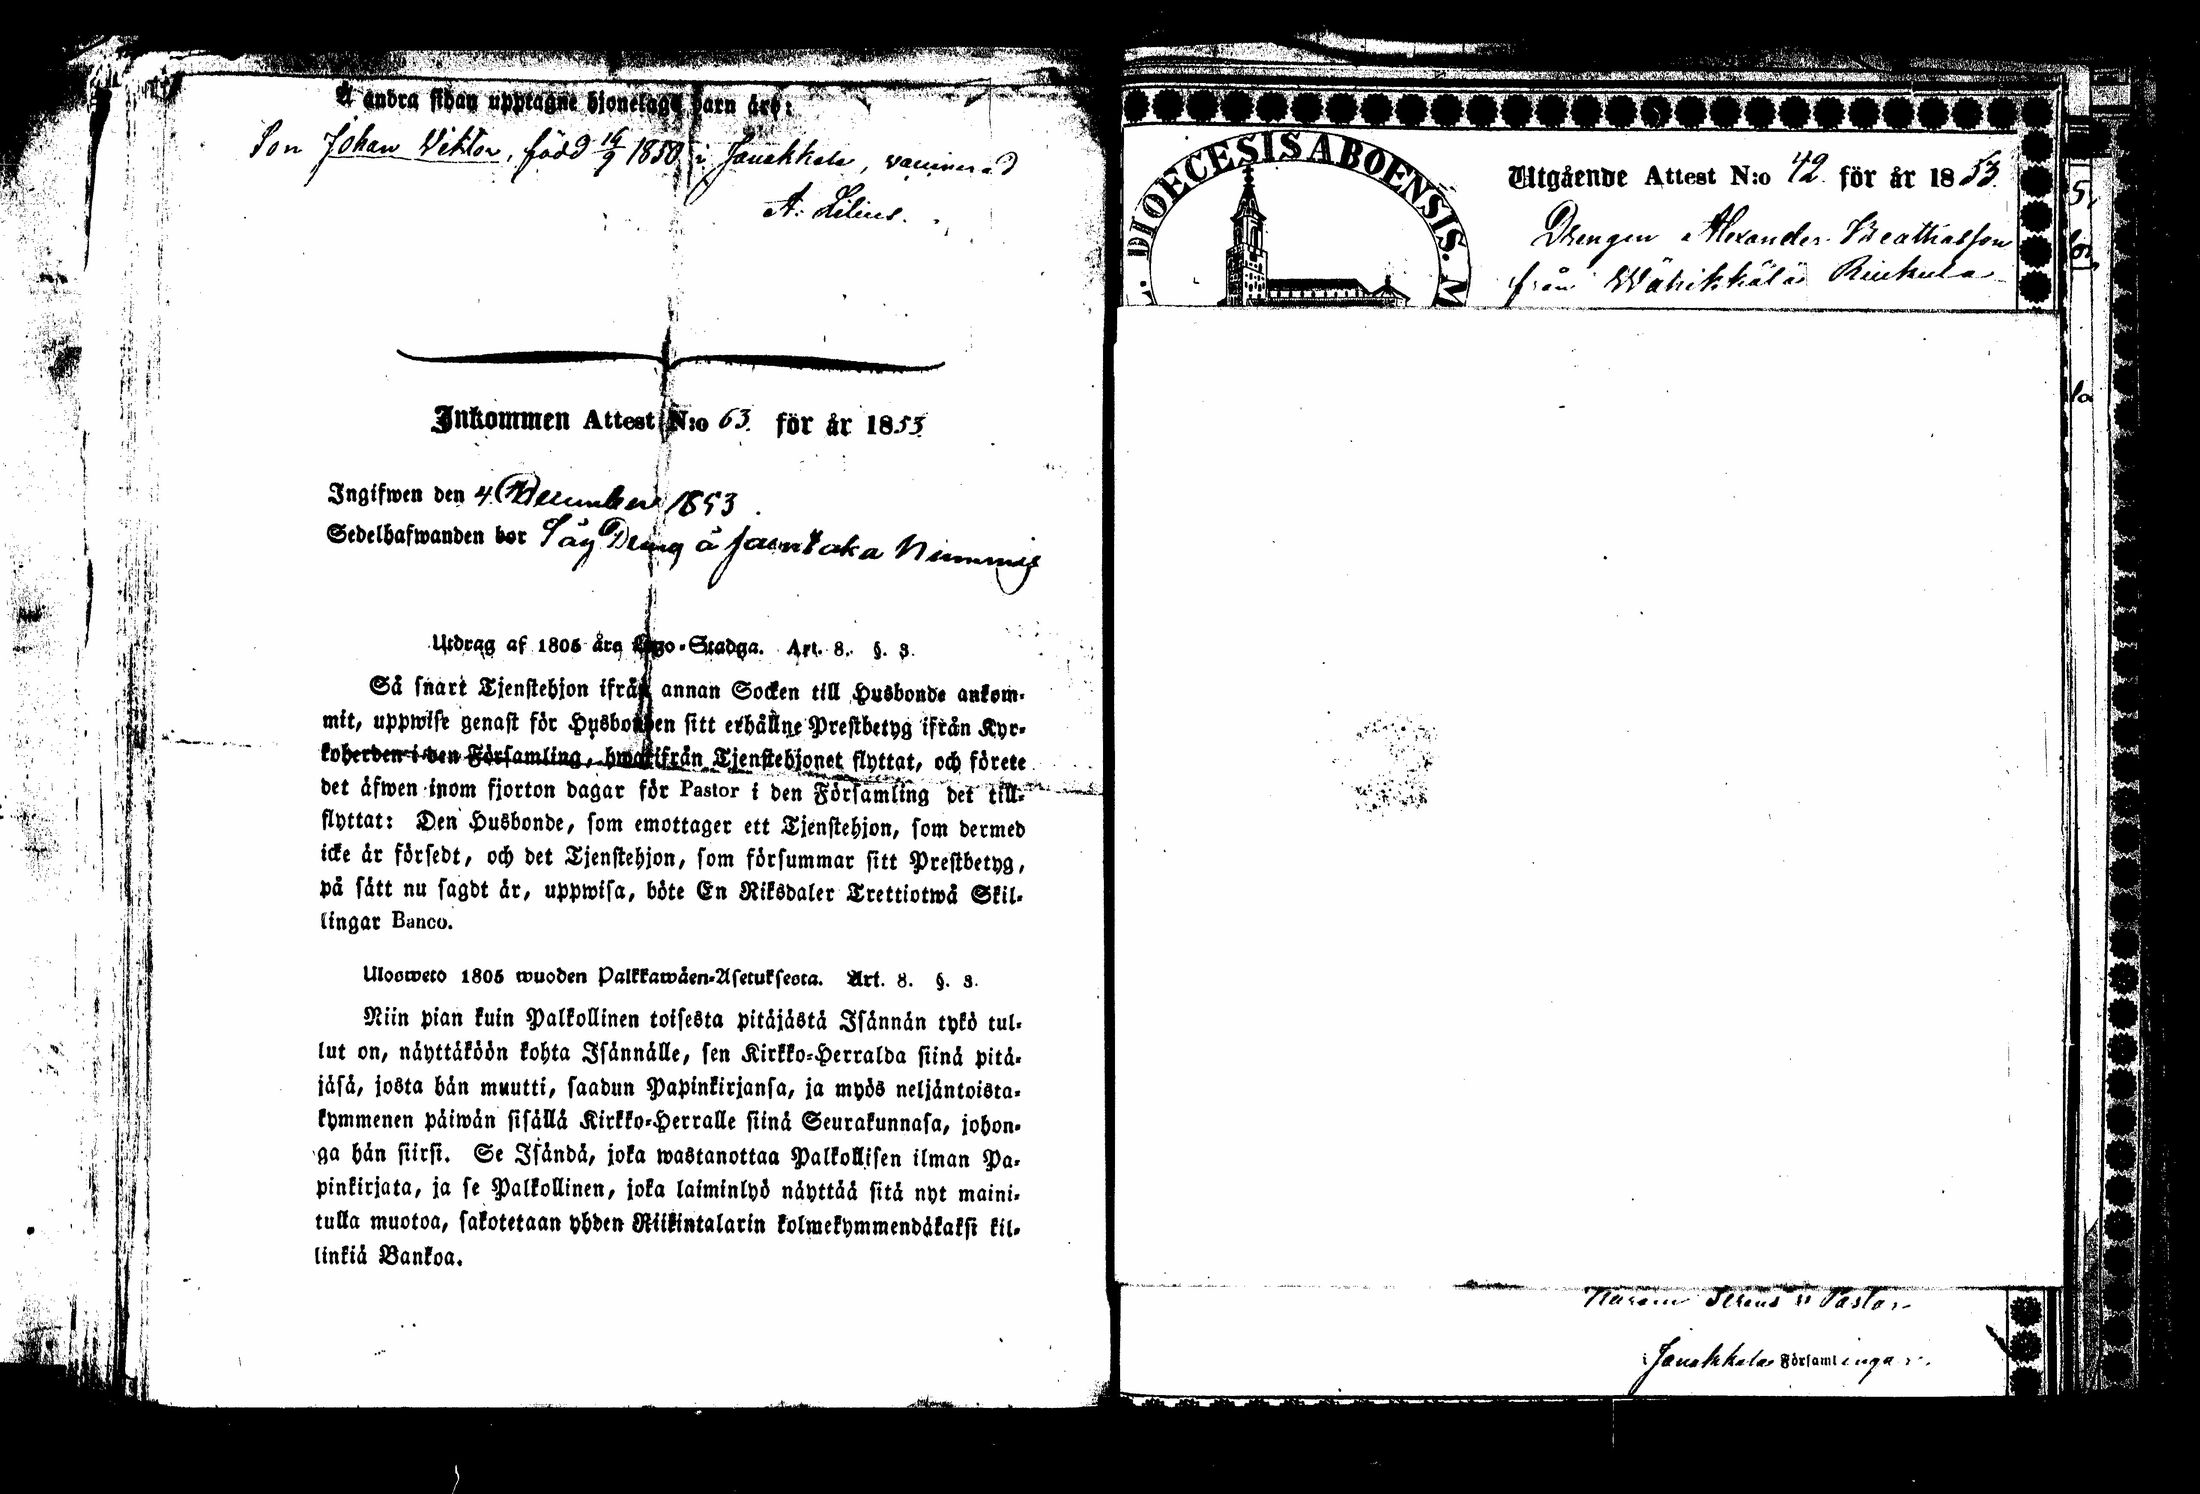 Å andra sidan upptagne hjonelags barn äro:
Son Johan Viktor, född 16/9 1850 i Janakkala, vaccinerad
A. Lilius.
Inkommen Attest N:o 63. för år 1853.
Ingifwen den 4 December 1853.
Sedelhafwanden bor Säg Dräng å Jaentaka Nummis
Utdrag af 1805 års Lego-Stadga. Art. 8. §. 3.
Så snart Tjenstehjon ifrån annan Socken till Husbonde ankom-
mit, uppwise genast för Husbonden sitt erhållne Prestbetyg ifrån Kyr-
koherden i den Församling, hwarifrån Tjenstehjonet flyttat, och förete
det äfwen inom fjorton dagar för Pastor i den Församling det till-
flyttat: Den Husbonde, som emottager ett Tjenstehjon, som dermed
icke är försedt, och det Tjenstehjon, som försummar sitt Prestbetyg,
på sätt nu sagdt är, uppwisa, böte En Riksdaler Trettiotwå Skil-
lingar Banco.
Ulosweto 1805 wuoden Palkkawäen-Asetuksesta. Art. 8. §. 3.
Niin pian kuin Palkollinen toisesta pitäjästä Isännän tykö tul-
lut on, näyttäköön kohta Isännälle, sen Kirkko-Herralda siinä pitä-
jäsä, josta hän muutti, saadun Papinkirjansa, ja myös neljäntoista-
kymmenen päiwän sisällä Kirkko-Herralle siinä Seurakunnasa, johon-
ga hän siirsi. Se Isändä, joka wastanottaa Palkollisen ilman Pa-
pinkirjata, ja se Palkollinen, joka laiminlyö näyttää sitä nyt maini-
tulla muotoa, sakotetaan yhden Riikintalarin kolmekymmendäkaksi kil-
linkiä Bankoa.
DIOECESIS ABOENSIS. M
Utgående Attest N:o 42. för år 1853.
Drengen Alexander
från Wähikkälä Rinkula
Pastor
i Janakkala Församlingar.